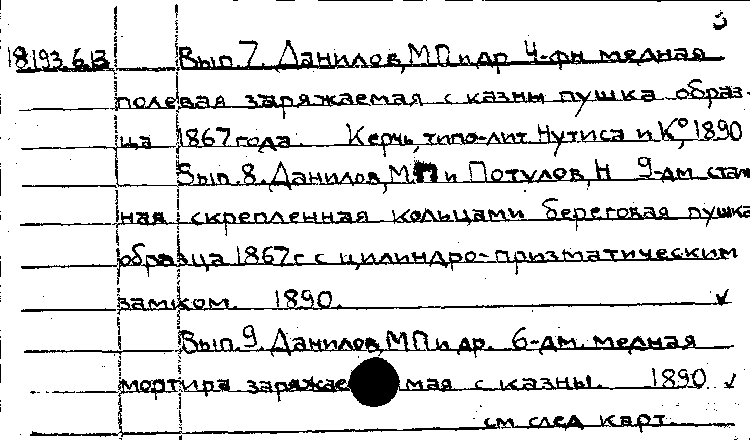 3
18193.6.13 Вып.7. Данилов, МП и др 4-фн медная
полевая заряжаемая с казны пушка образ-
ца 1867 года. Керчь, типо-лит Нутиса и К°, 1890
Вып.8. Данилов, МП и Потулов, Н 9-дм стал
ная скрепленная кольцами береговая пушка
образца 1867 г с цилиндро-призматическим
замком. 1890. ✓
Вып.9. Данилов, МП и др. 6-дм. медная
мортира заряжаемая с казны. 1890 ✓
см след карт.